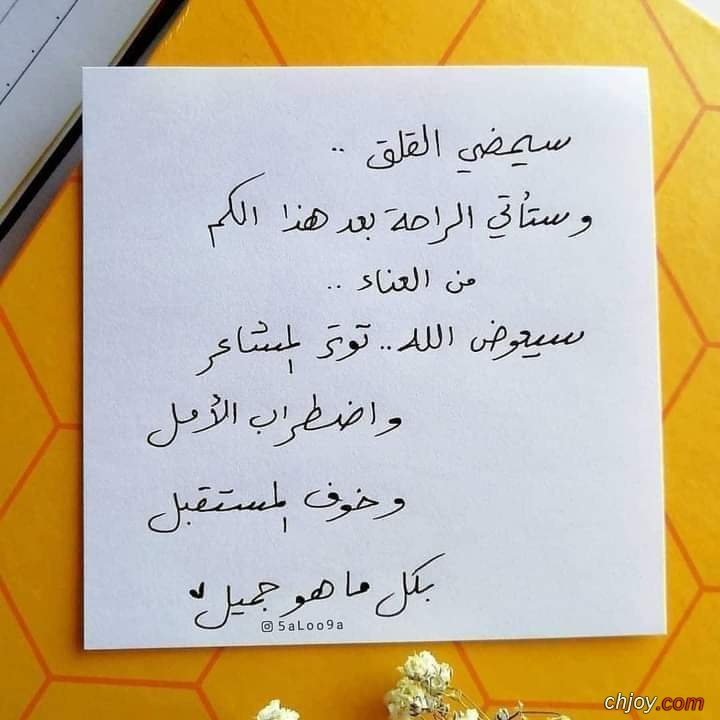 سيمضي القلق ..
وستأتي الراحة بعد هذا الكم
من العناء ..
سيعوض الله .. توتر المشاعر
واضطراب الأمل
وخوف المستقبل
بكل ما هو جميل ♥
5aLoo9a
chjoy.com